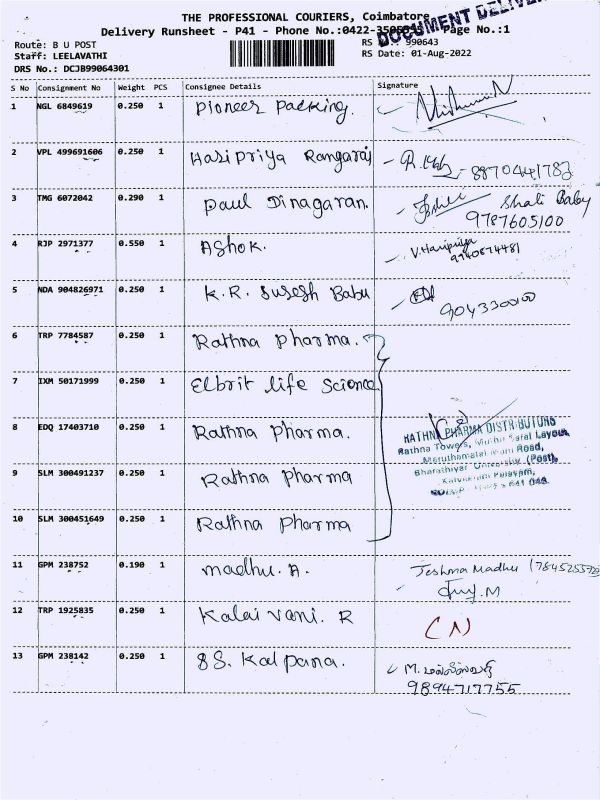 THE PROFESSIONAL COURIERS, Coimbatore
DOCUMENT
Delivery Runsheet - P41 - Phone No.:0422- Page No.:1
Route: B U POST
RS 990643
Staff: LEELAVATHI
RS Date: 01-Aug-2022
DRS No.: DCJB99064301
S No Consignment No Weight PCS Consignee Details Signature
1 NGL 6849619 0.250 1 Pioneer Packing.
2 VPL 499691606 0.250 1 Haripriya Rangaraj
8870441782
3 TMG 6072042 0.290 1 Paul Dinagaran. Shali Baby
9787605100
4 RJP 2971377 0.550 1 Ashok. V. Haripriya
5 NDA 904826971 0.250 1 K.R. Suresh Babu
6 TRP 7784587 0.250 1 Rathna Pharma.
7 IXM 50171999 0.250 1 Elbrit life Science
8 EDQ 17403710 0.250 1 Rathna Pharma.
RATHNA PHARMA DISTRIBUTORS
Rathna Towers, Layout,
Maruthamalai Main Road,
Bharathiyar University (Post),
641 046.
9 SLM 300491237 0.250 1 Rathna Pharma
10 SLM 300451649 0.250 1 Rathna Pharma
11 GPM 238752 0.190 1 Madhu. A. Jeshma Madhu
12 TRP 1925835 0.250 1 Kalaivani. R
13 GPM 238142 0.250 1 S. Kalpana. M.
9894717755